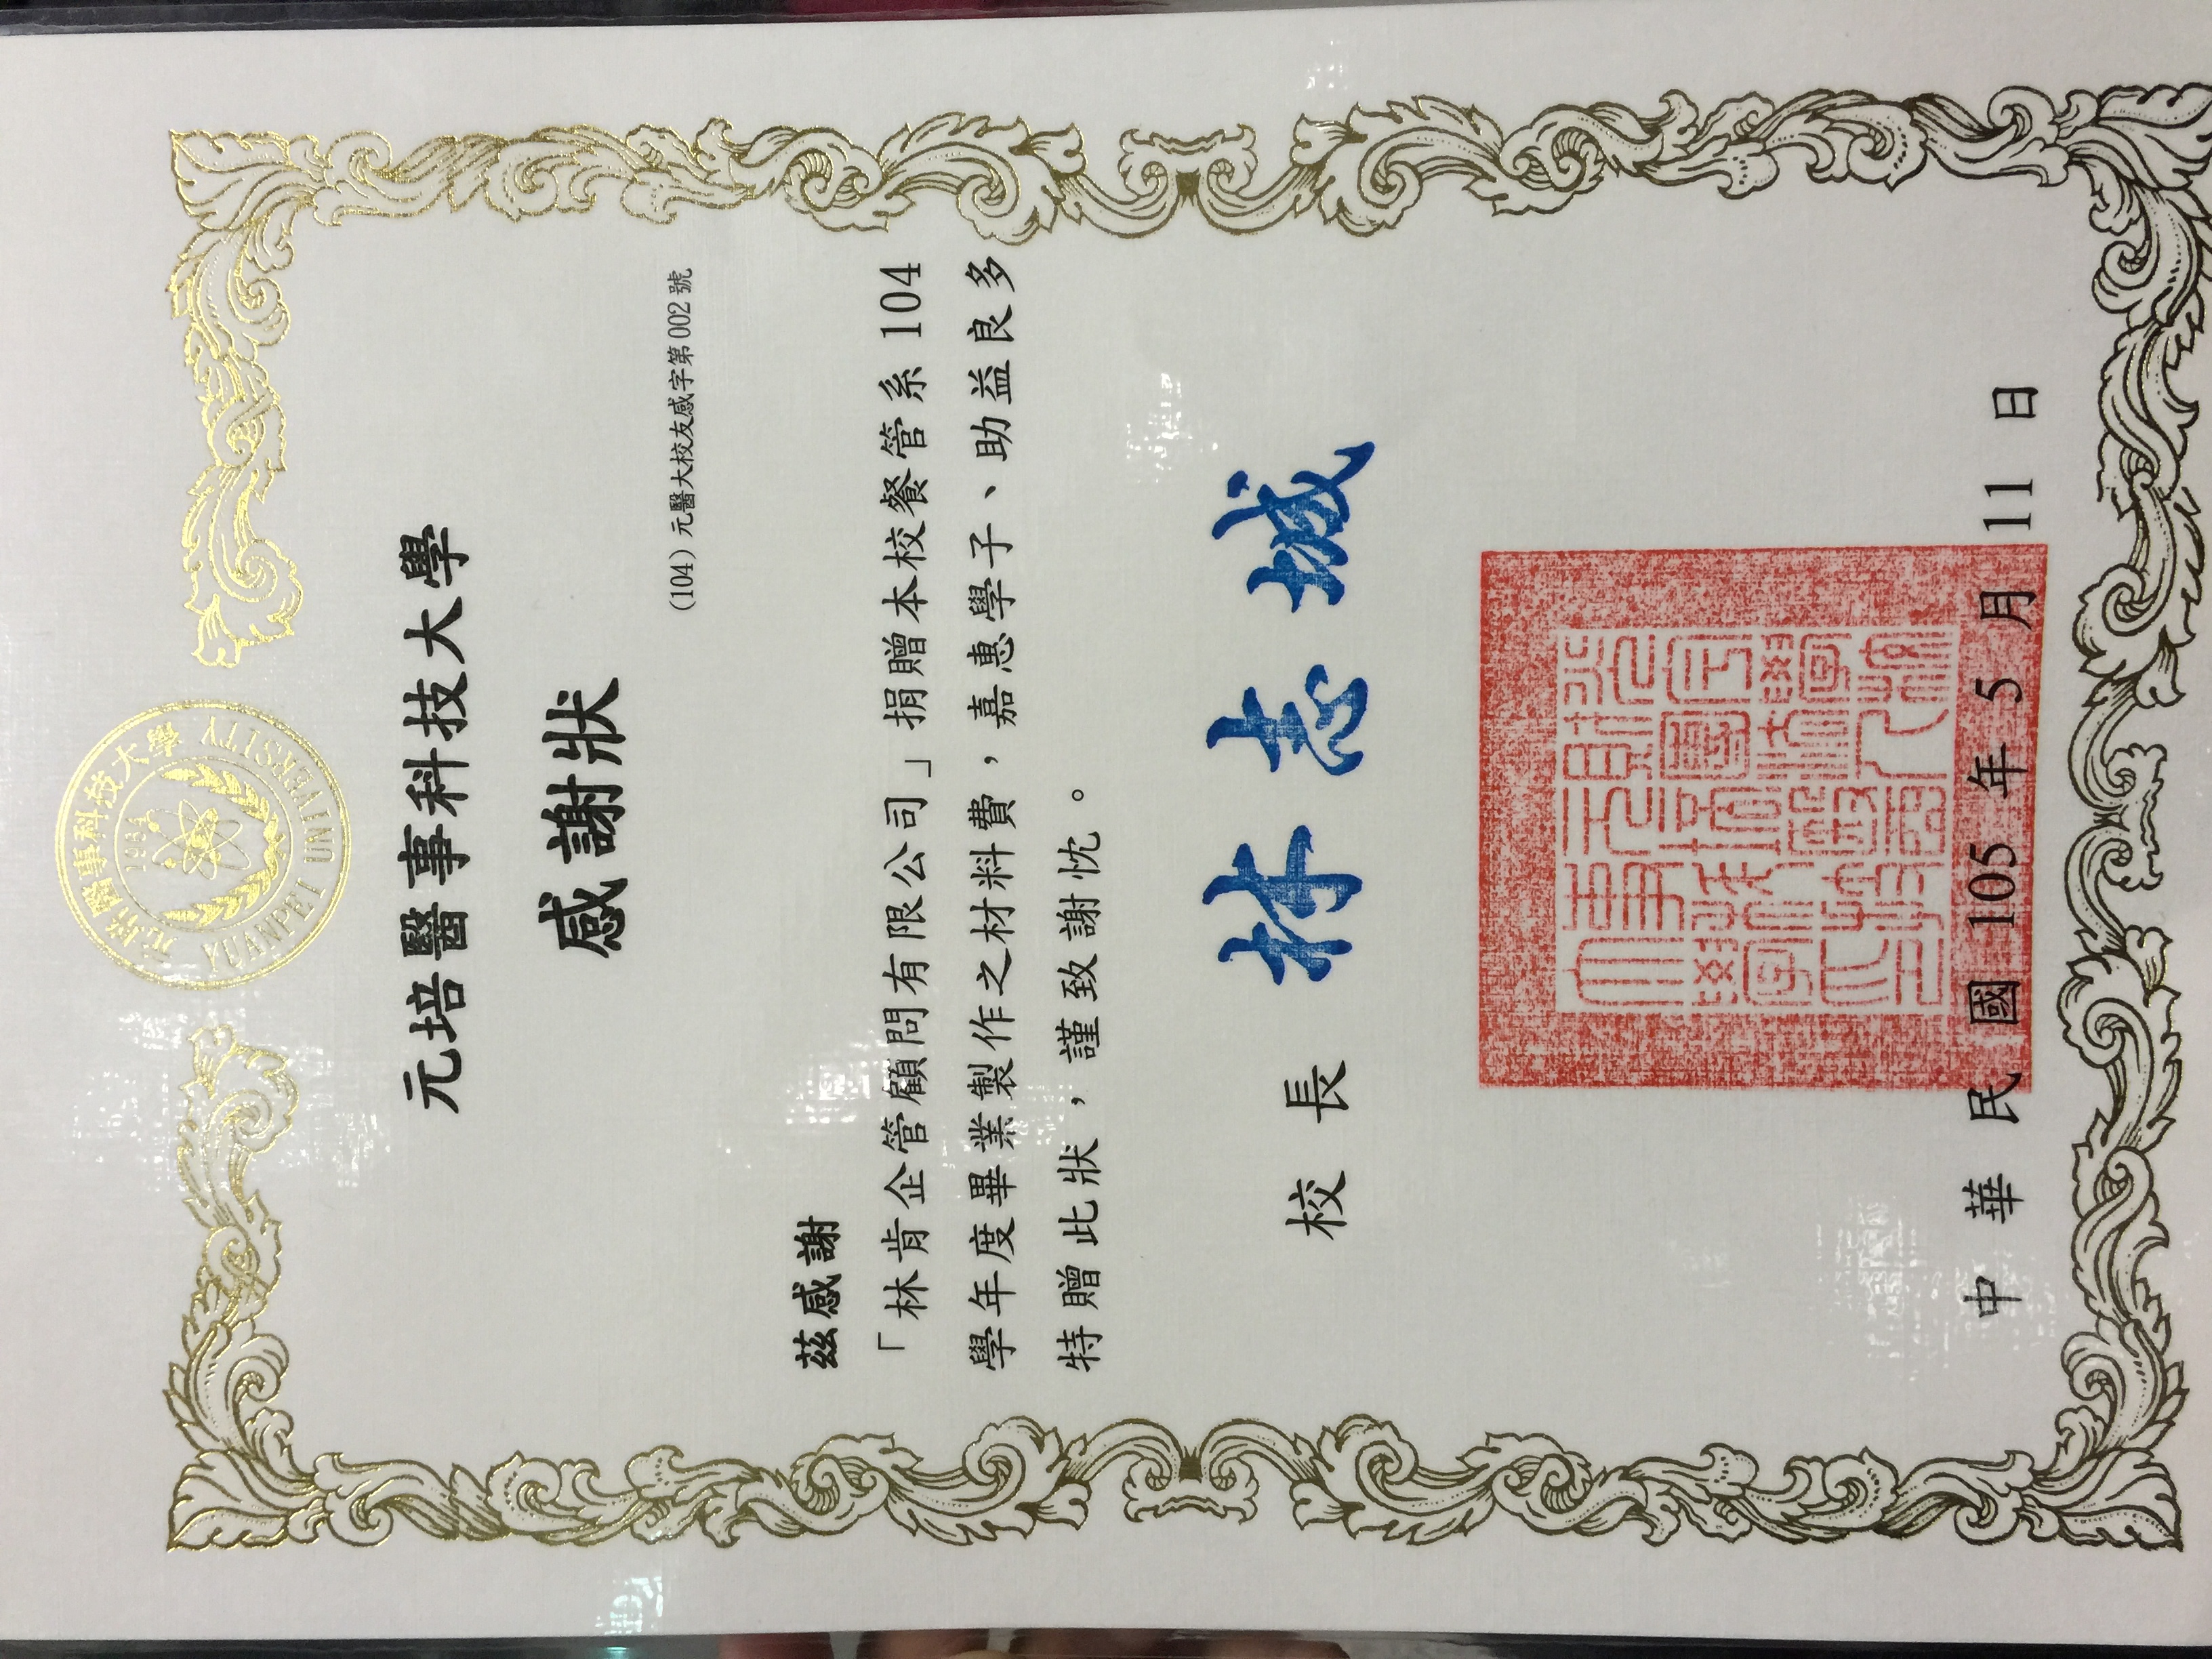 元培醫事科技大學
1964
YUANPEI UNIVERSITY
元培醫事科技大學
感謝狀
(104) 元醫大校友感字第002號
茲感謝
「林肯企管顧問有限公司」捐贈本校餐管系 104
學年度畢業製作之材料費，嘉惠學子、助益良多
特贈此狀，謹致謝忱。
校長 林志城
中華民國 105 年 5 月 11 日